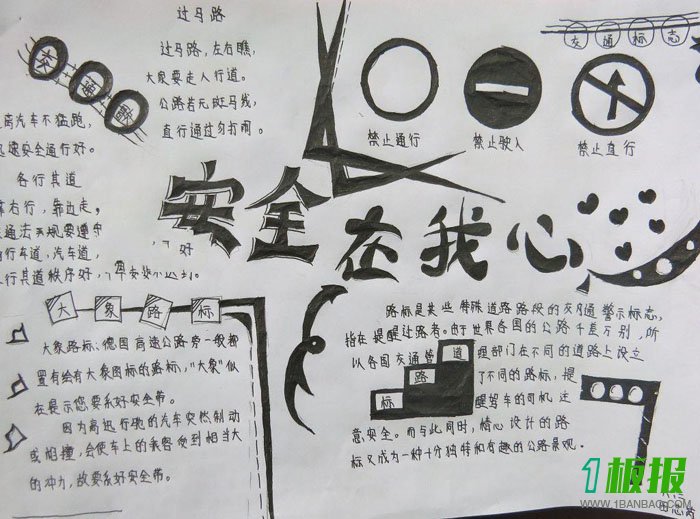 过马路
过马路,左右瞧,
大象要走人行道。
公路若无斑马线,
直行通过勿打闹。
交通
离汽车不猛跑,
安全通行好。
各行其道
右行,靠边走。
行车道,汽车道,
行其道秩序好,
交通标志
禁止通行
禁止驶入
禁止直行
安全在我心
大象路标
大象路标:德国高速公路旁一般都
置有绘有大象图标的路标,"大象"似
在展示您要系好安全带。
因为高速行驶的汽车突然制动
或相撞,会使车上的乘客受到相当大
的冲力,故要系好安全带。
路标是某些特殊道路路段的交通警示标志,
旨在提醒让路者。由于世界各国的公路千差万别,所
以各国交通管理部门在不同的道路上设立
了不同的路标,提
醒驾车的司机注
意安全。而与此同时,精心设计的路
标又成为一种十分独特和有趣的公路景观。
道
路
标
1板报
WWW.1BANBAO.COM